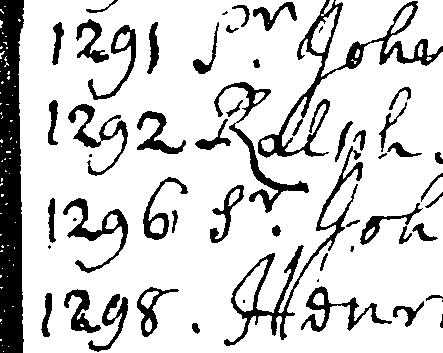 1291 Sr. John
1292 Ralph.
1296 Sr. Joh
1298. Henr